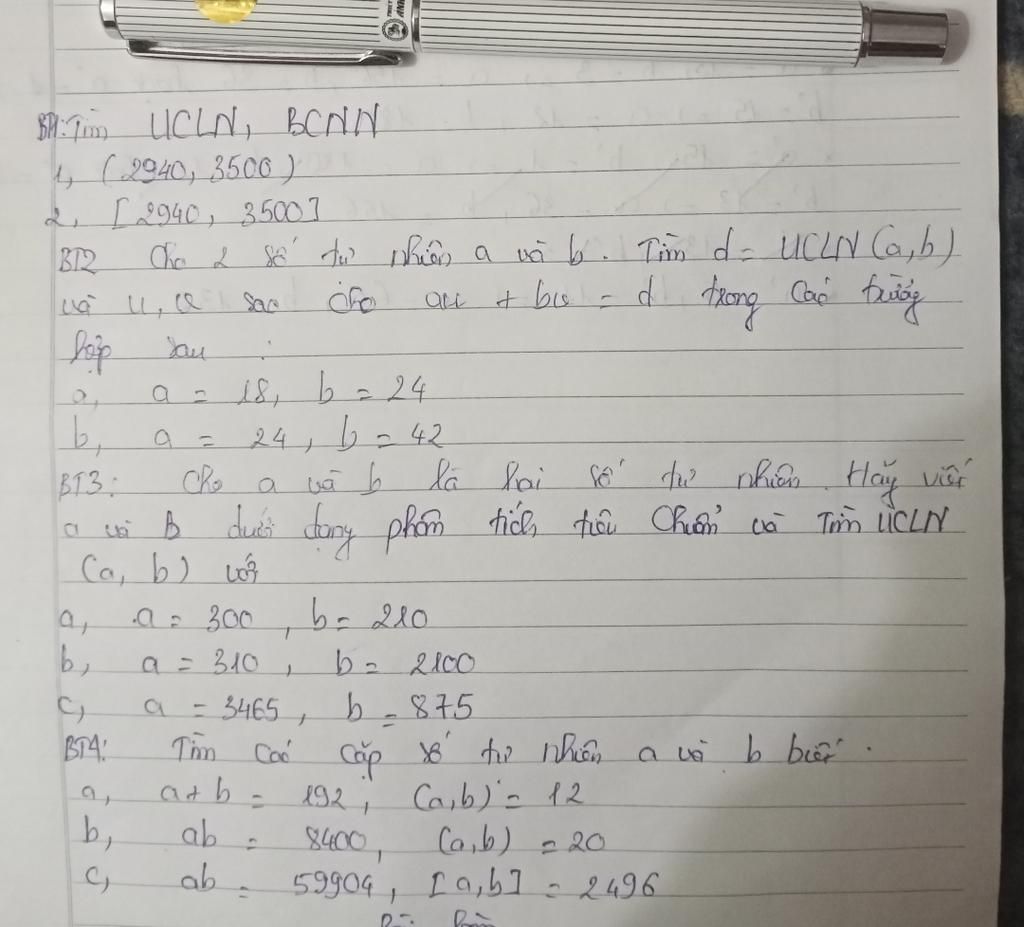 BT1: Tìm UCLN, BCNN
1, (2940, 3500)
2, [2940, 3500]
BT2 Cho 2 số tự nhiên a và b. Tìm d = UCLN(a,b)
và u, v sao cho au + bv = d trong các trường
hợp sau :
a, a = 18, b = 24
b, a = 24, b = 42
BT3: Cho a và b là hai số tự nhiên. Hãy viết
a và b dưới dạng phân tích tiêu chuẩn và Tìm UCLN
(a, b) với
a, a = 300, b = 210
b, a = 310, b = 2100
c, a = 3465, b = 875
BT4: Tìm các cặp số tự nhiên a và b biết.
a, a+b = 192, (a,b) = 12
b, ab = 8400, (a,b) = 20
c, ab = 59904, [a,b] = 2496